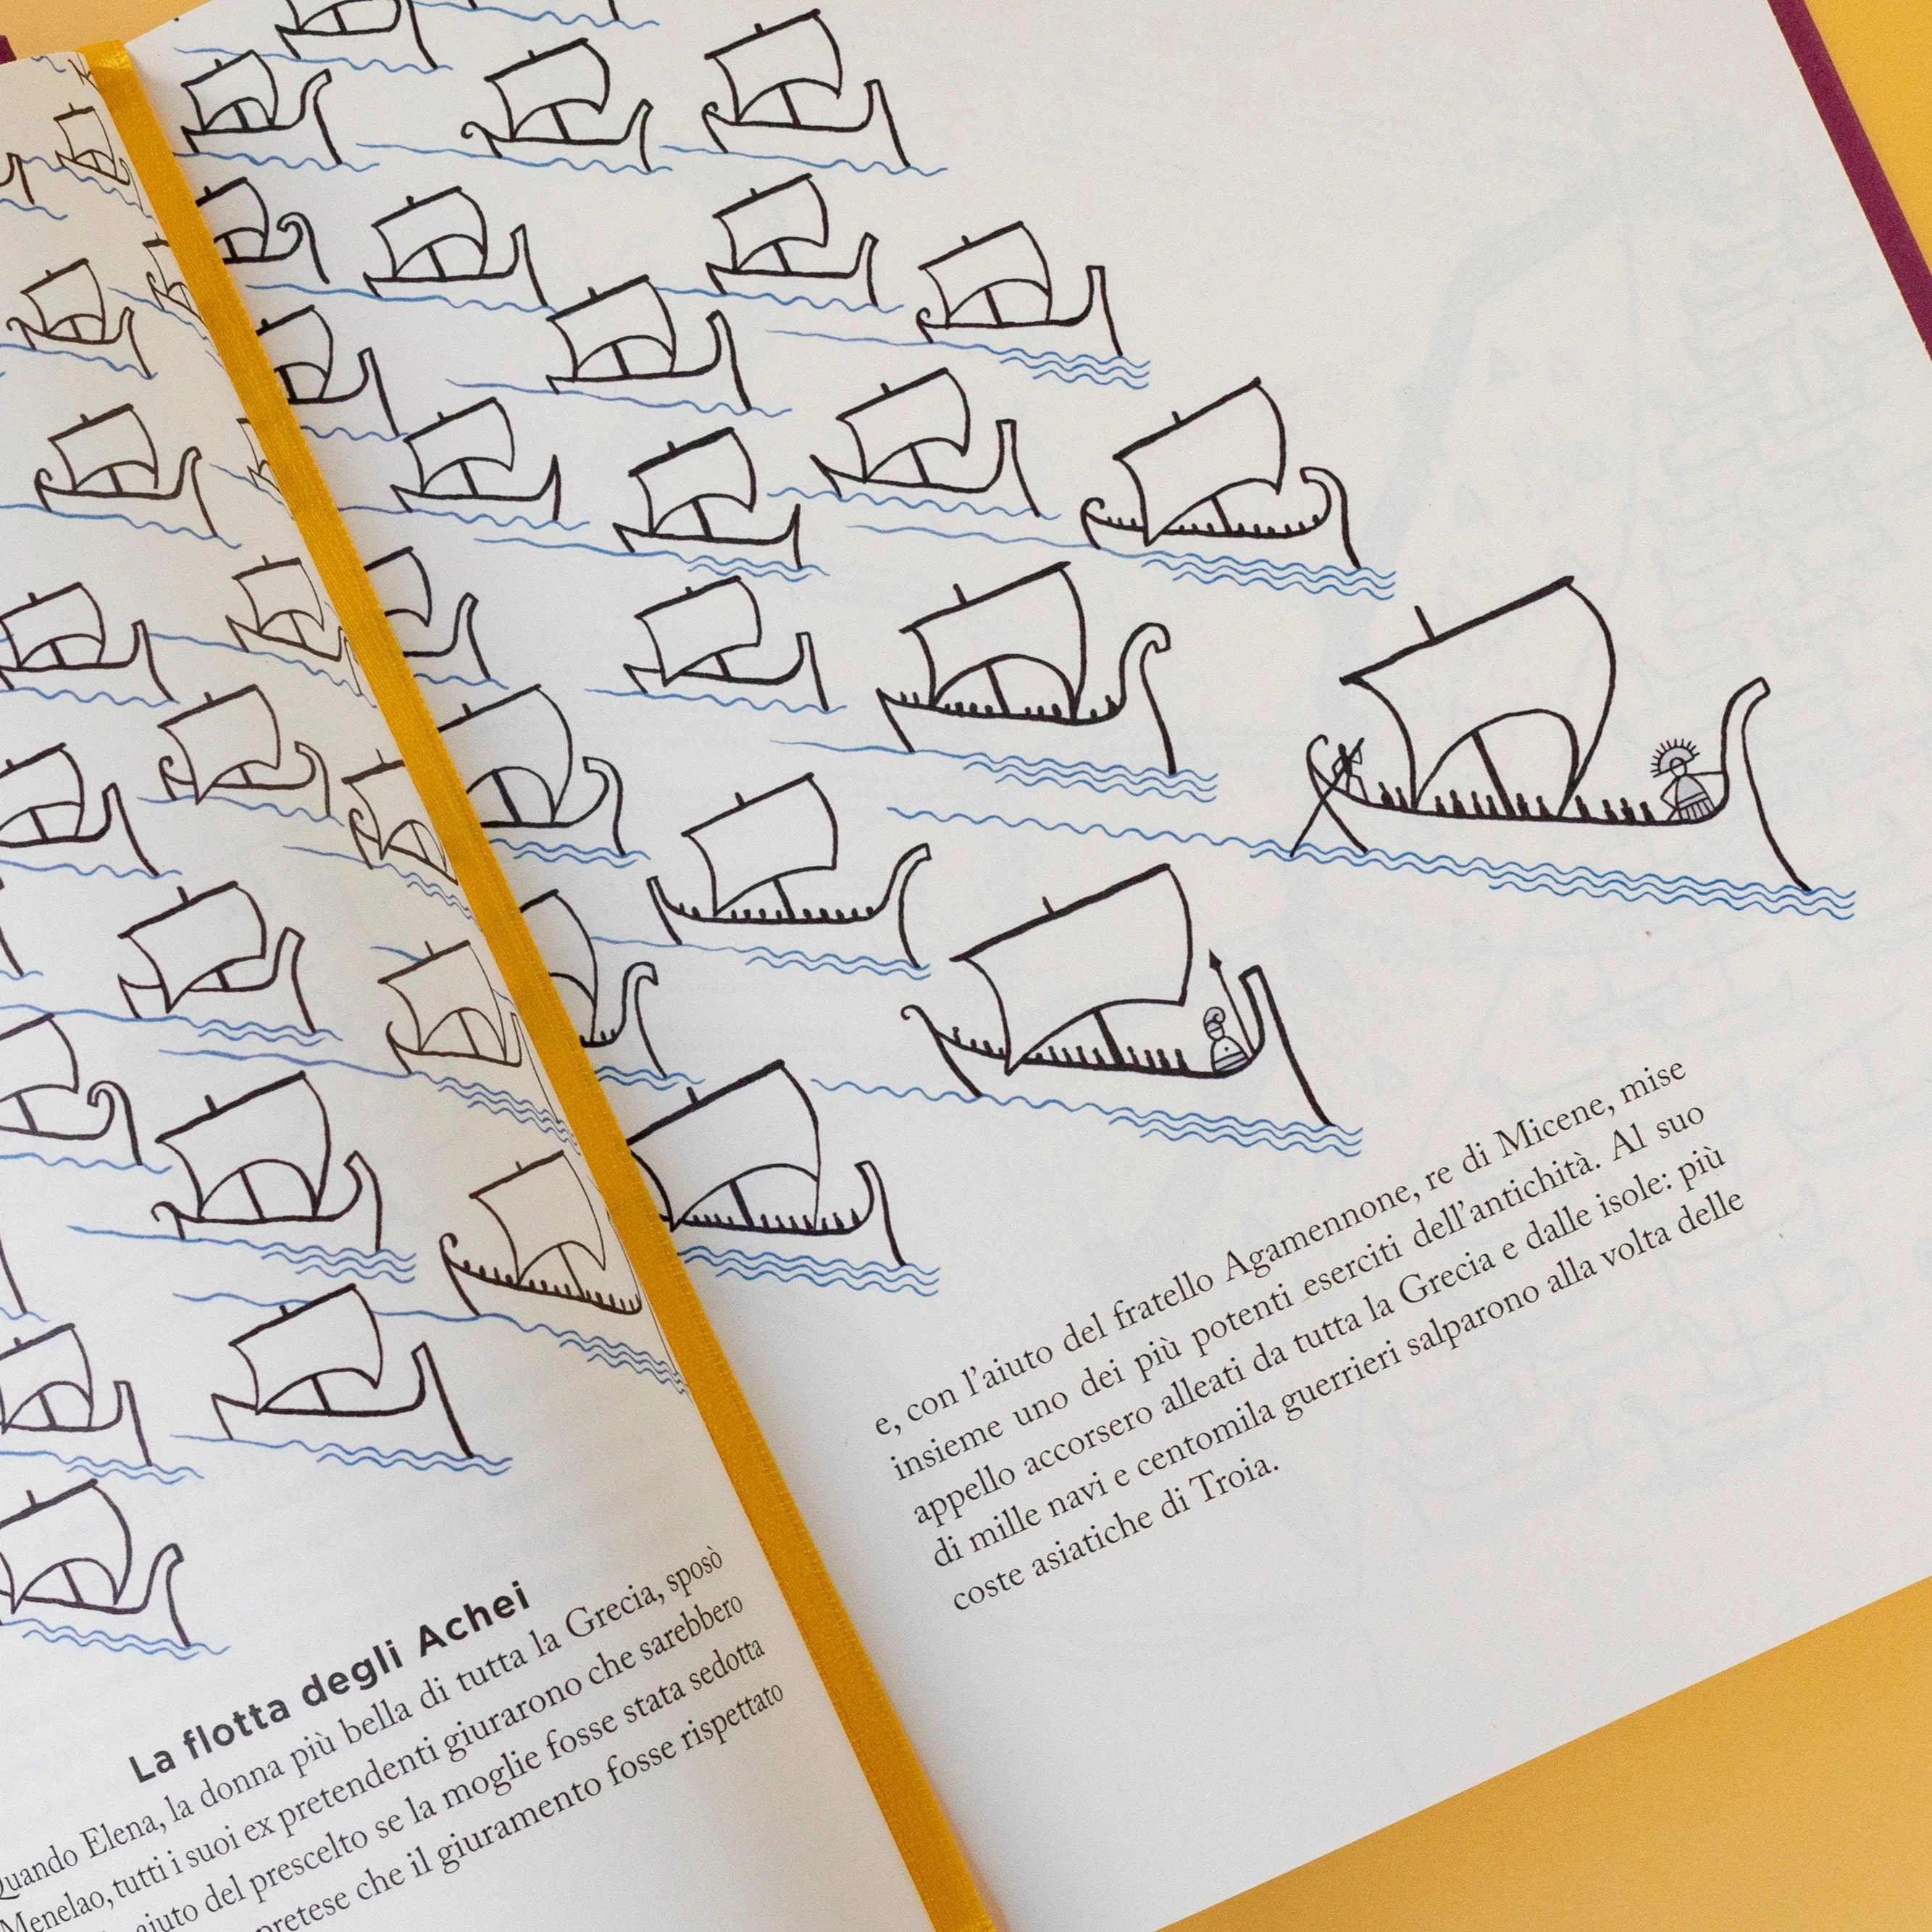 La flotta degli Achei
Quando Elena, la donna più bella di tutta la Grecia, sposò
Menelao, tutti i suoi ex pretendenti giurarono che sarebbero
aiuto del prescelto se la moglie fosse stata sedotta
pretese che il giuramento fosse rispettato
e, con l'aiuto del fratello Agamennone, re di Micene, mise
insieme uno dei più potenti eserciti dell'antichità. Al suo
appello accorsero alleati da tutta la Grecia e dalle isole: più
di mille navi e centomila guerrieri salparono alla volta delle
coste asiatiche di Troia.